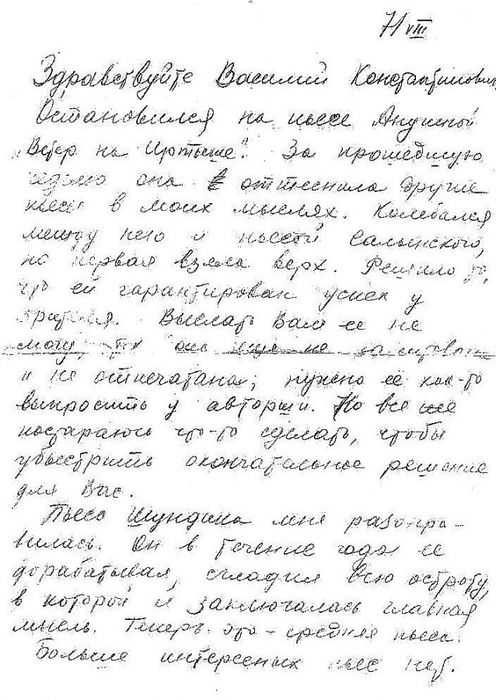 7/VIII
Здравствуйте Василий Константинович
Остановился на пьесе Анушкой
"Ветер на Иртыше". За прошедшую
неделю она оттеснила другие
пьесы в моих мыслях. Колебался
между нею и пьесой Салынского,
но первая взяла верх. Решило то,
что ей гарантирован успех у
зрителя. Выслать Вам ее не
могу тк она еще не
и не отпечатана; нужно её как-то
выпросить у авторши. Но все же
постараюсь что-то сделать, чтобы
убыстрить окончательное решение
для Вас.
Пьеса Шундика мне разонра-
вилась. Он в течение года ее
дорабатывая, сгладил всю остроту,
в которой и заключалась главная
мысль. Теперь это - средняя пьеса.
Больше интересных пьес нет.